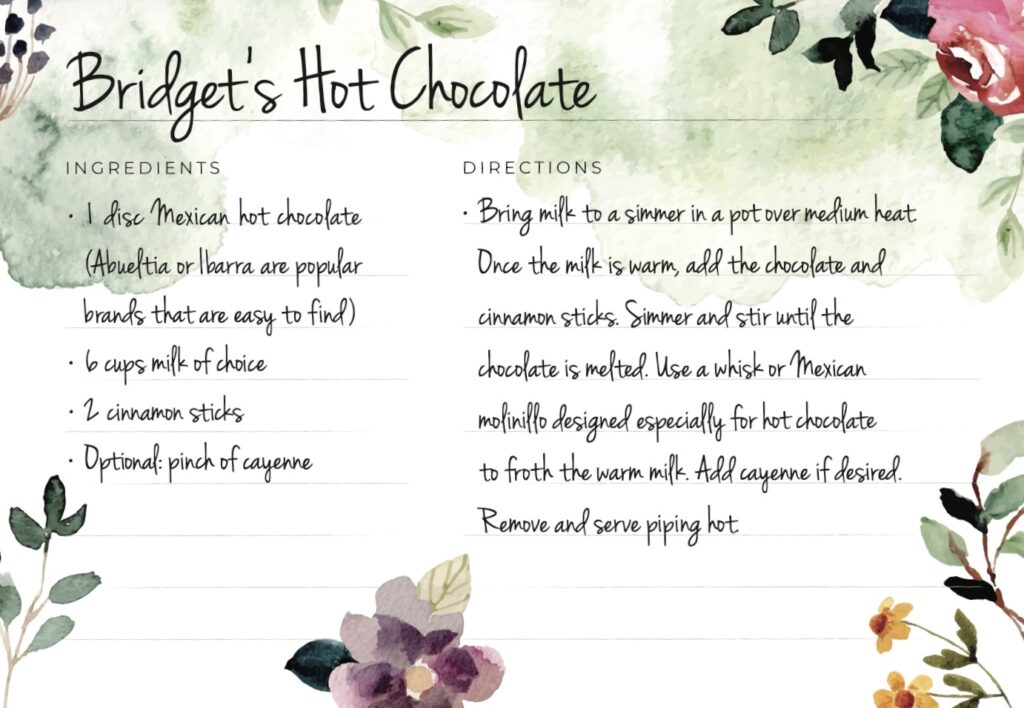 Bridget's Hot Chocolate
INGREDIENTS
• 1 disc Mexican hot chocolate
(Abueltia or Ibarra are popular
brands that are easy to find)
• 6 cups milk of choice
• 2 cinnamon sticks
• Optional: pinch of cayenne
DIRECTIONS
• Bring milk to a simmer in a pot over medium heat.
Once the milk is warm, add the chocolate and
cinnamon sticks. Simmer and stir until the
chocolate is melted. Use a whisk or Mexican
molinillo designed especially for hot chocolate
to froth the warm milk. Add cayenne if desired.
Remove and serve piping hot.